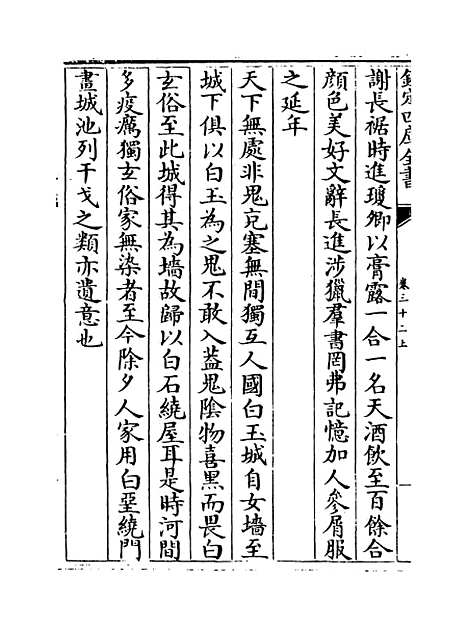 欽定四庫全書
卷三十二上
謝長裾時進瓊卿以膏露一合一名天酒飲至百餘合
顔色美好文辭長進涉獵羣書罔弗記憶加人參屑服
之延年
天下無處非鬼充塞無間獨互人國白玉城自女墻至
城下俱以白玉為之鬼不敢入葢鬼陰物喜黑而畏白
玄俗至此城得其為墻故歸以白石繞屋耳是時河間
多疫癘獨玄俗家無染者至今除夕人家用白堊繞門
畫城池列干戈之類亦遺意也